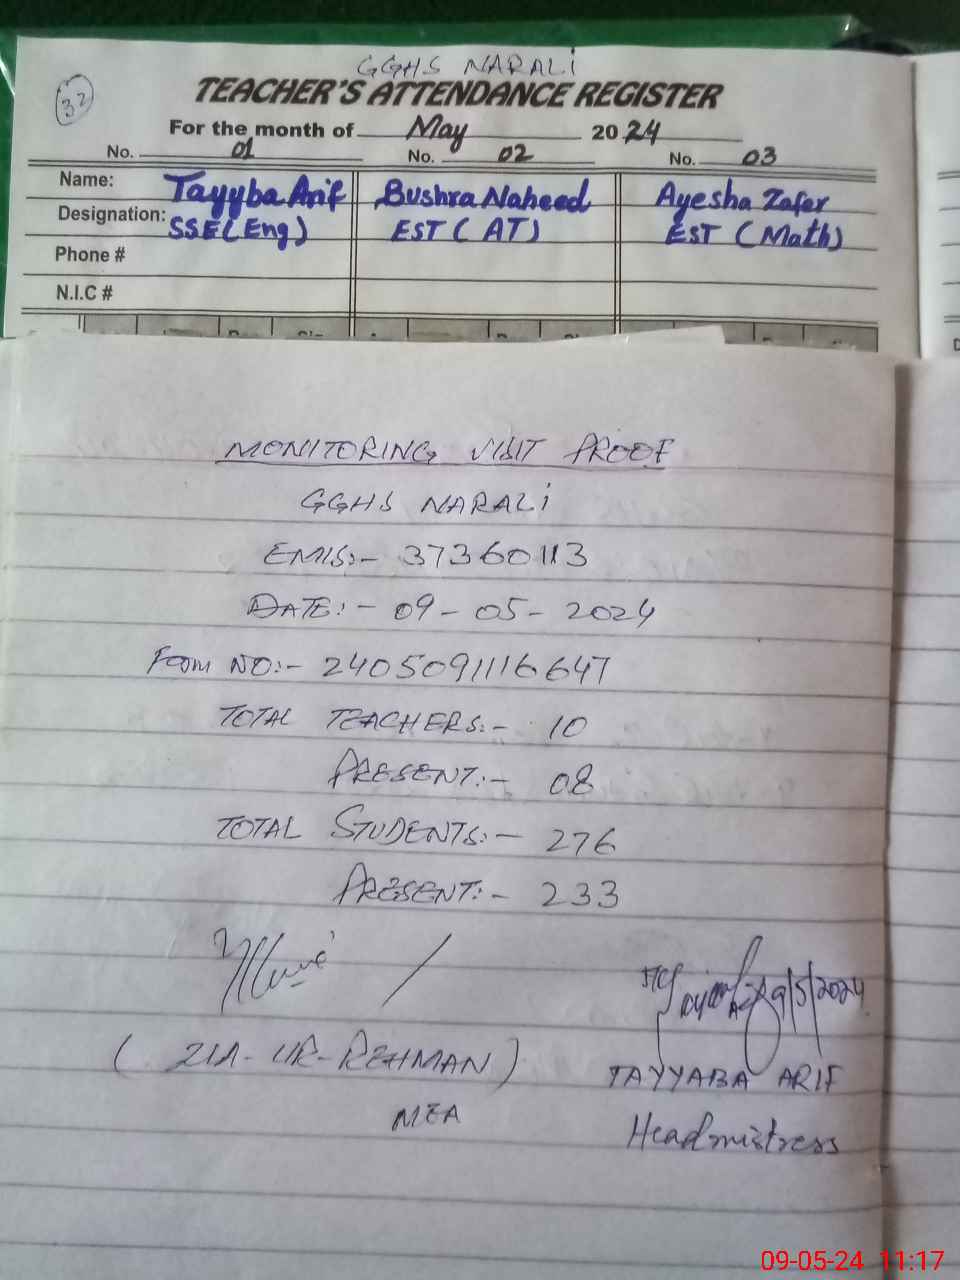 GGHS NARALi
32
TEACHER'S ATTENDANCE REGISTER
For the month of May 2024
No. 01 No. 02 No. 03
Name: Tayyba Arif Bushra Naheed Ayesha Zafar
Designation: SSE(Eng) EST (AT) EST (Math)
Phone #
N.I.C #
MONITORING VISIT PROOF
GGHS NARALi
EMIS:- 37360113
DATE:- 09-05-2024
FORM NO:- 2405091116647
TOTAL TEACHERS:- 10
PRESENT:- 08
TOTAL STUDENTS:- 276
PRESENT:- 233
9/5/2024
(ZIA-UR-REHMAN)
TAYYABA ARIF
MEA
Headmistress
09-05-24 11:17